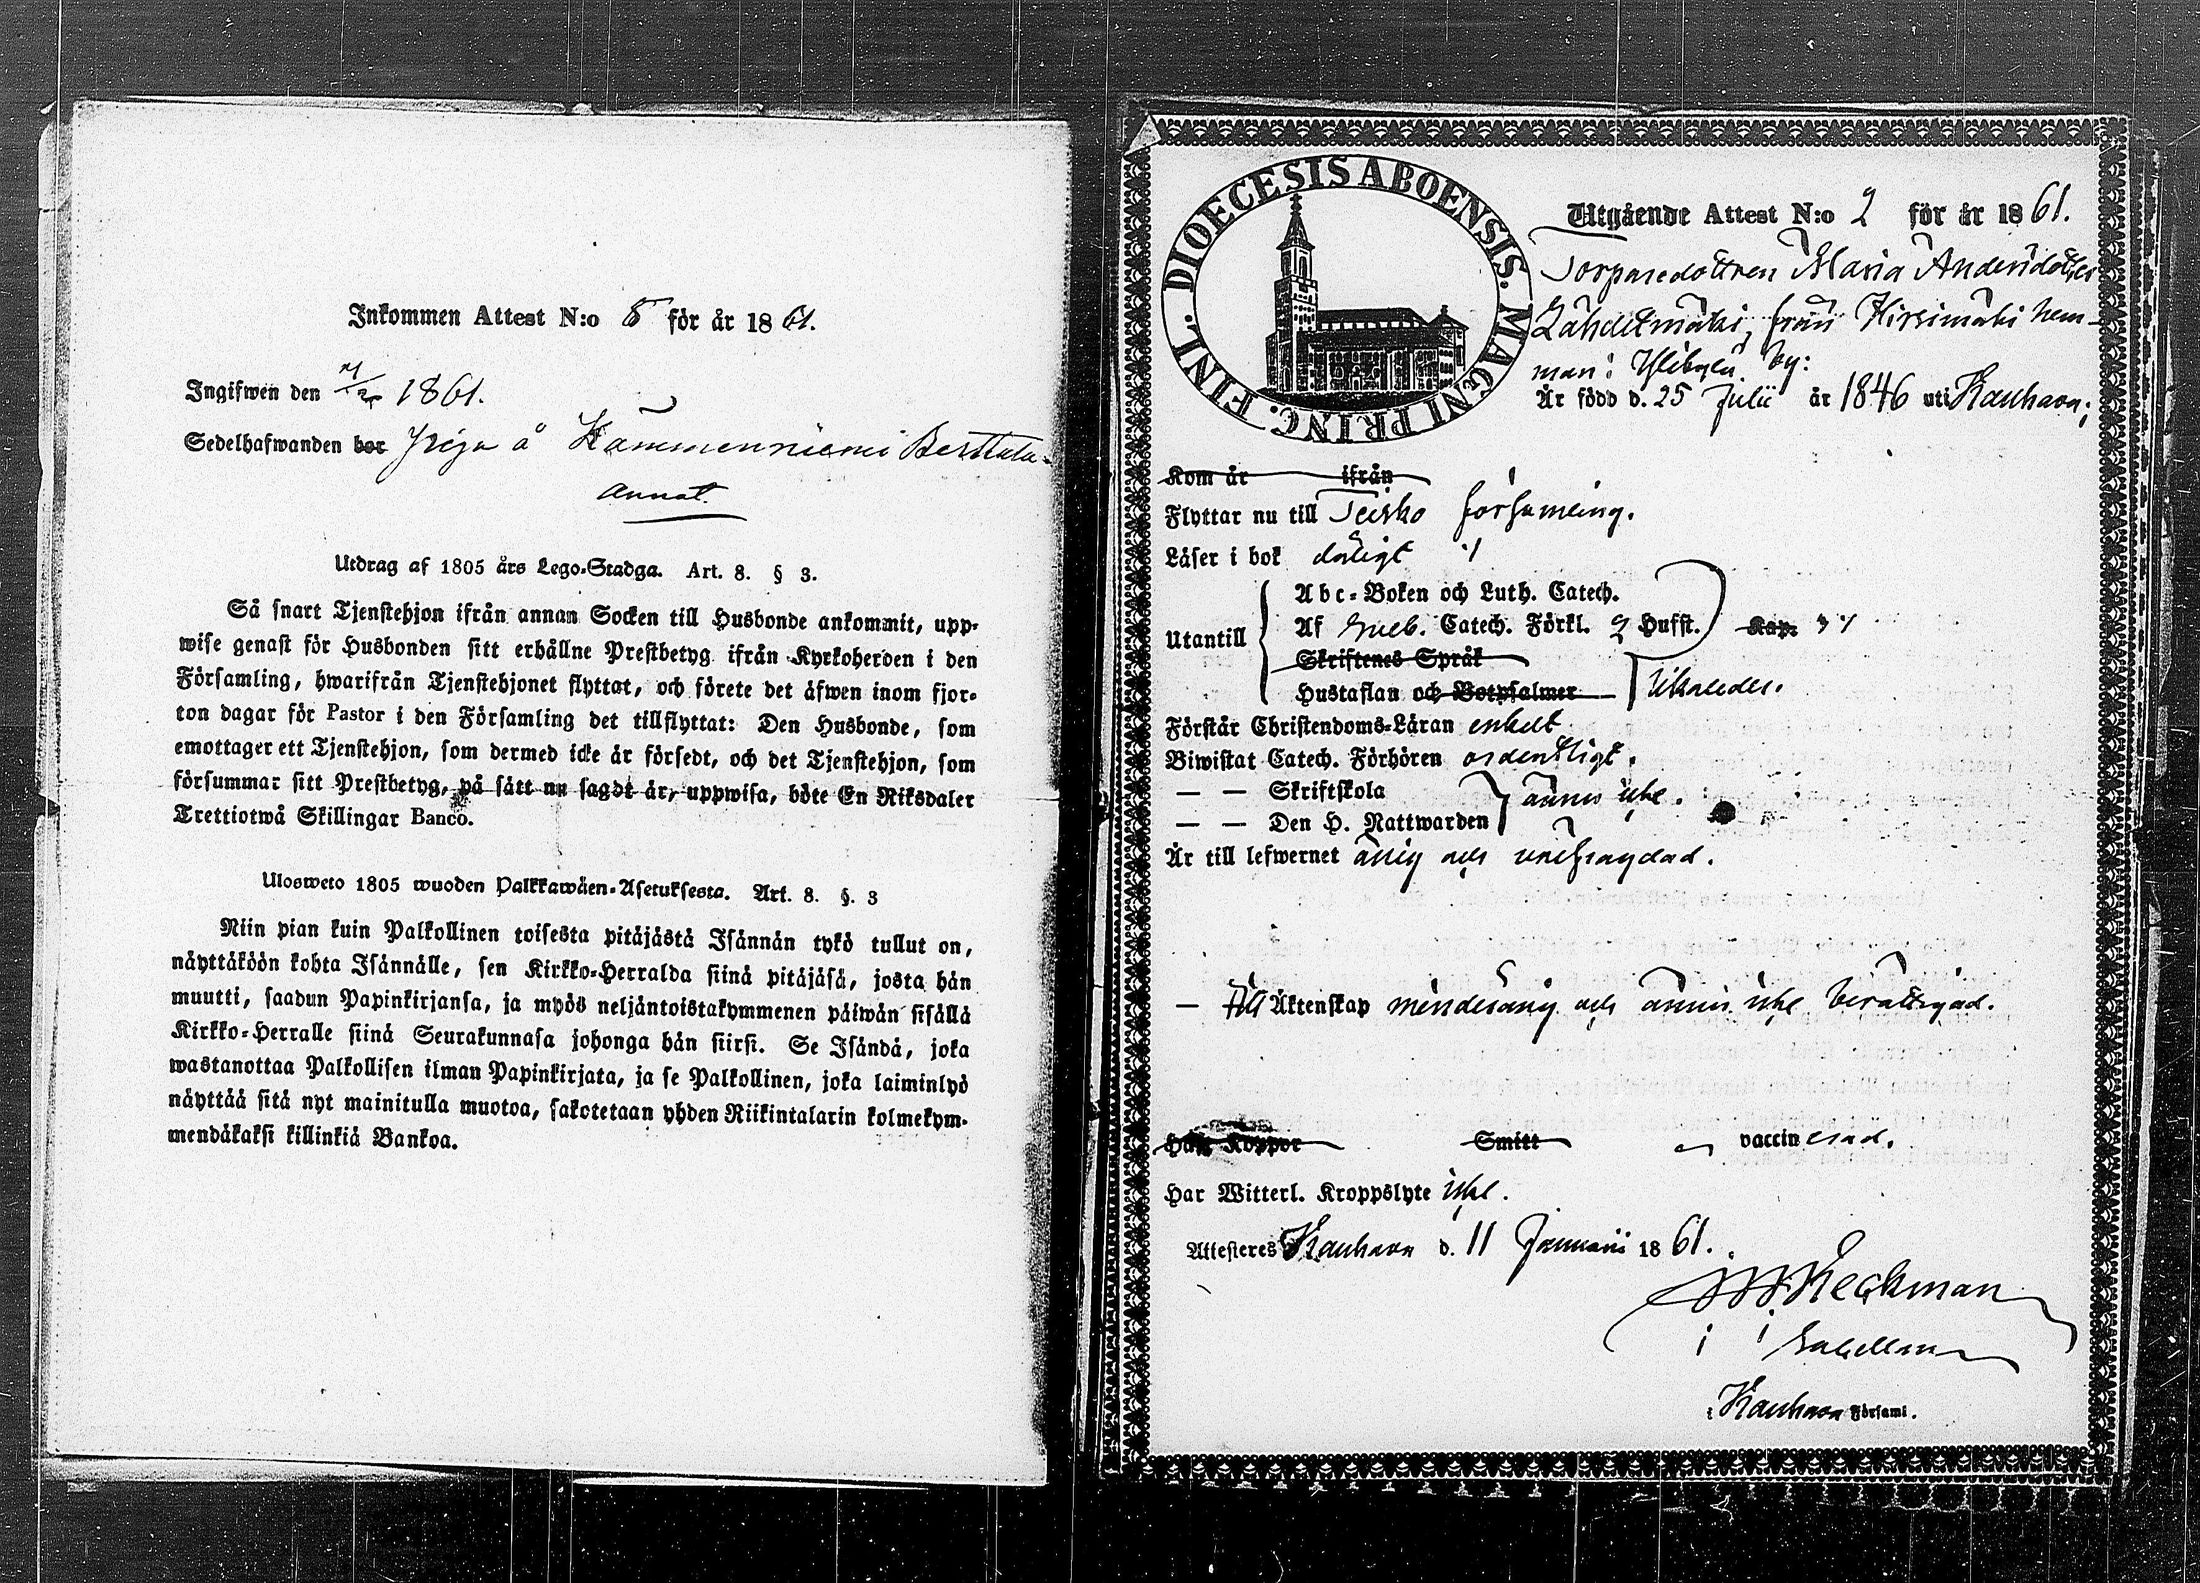 Inkommen Attest N:o 8 för år 1861.
Ingifwen den 1861.
Sedelhafwanden bor Piga å Kämmenniemi Berttula
annat.
Utdrag af 1805 års Lego-Stadga. Art. 8. § 3.
Så snart Tjenstehjon ifrån annan Socken till Husbonde ankommit, upp-
wise genast för Husbonden sitt erhållne Prestbetyg ifrån Kyrkoherden i den
Församling, hwarifrån Tjenstehjonet flyttat, och förete det äfwen inom fjor-
ton dagar för Pastor i den Församling det tillflyttat: Den Husbonde, som
emottager ett Tjenstehjon, som dermed icke är försedt, och det Tjenstehjon, som
försummar sitt Prestbetyg, på sätt nu sagdt är, uppwisa, böte En Riksdaler
Trettiotwå Skillingar Banco.
Ulosweto 1805 wuoden Palkkawäen-Asetuksesta. Art. 8. §. 3
Niin pian kuin Palkollinen toisesta pitäjästä Isännän tykö tullut on,
näyttäköön kohta Isännälle, sen Kirkko-Herralda siinä pitäjäsä, josta hän
muutti, saadun Papinkirjansa, ja myös neljäntoistakymmenen päiwän sisällä
Kirkko-Herralle siinä Seurakunnasa johonga hän siirsi. Se Isändä, joka
wastanottaa Palkollisen ilman Papinkirjata, ja se Palkollinen, joka laiminlyö
näyttää sitä nyt mainitulla muotoa, sakotetaan yhden Riikintalarin kolmekym-
mendäkaksi killinkiä Bankoa.
DIOECESIS ABOENSIS. MAGNI PRINC. FINL.
Utgående Attest N:o 2 för år 1861.
Torparedottren Maria Andersdotter
Lähdetmäki, från Hirsimäki hem-
man i Ylikylä by:
Är född d. 25 Julii år 1846 uti Kauhava;
Kom år ifrån
Flyttar nu till Teisko församling.
Läser i bok dåligt
Utantill
Abc-Boken och Luth. Catech.
Af Sveb. Catech. Förkl. 2 Hufst. Kap.
Skriftenes Språk
Hustaflan och Botpsalmer likaledes.
Förstår Christendoms-Läran enkelt
Biwistat Catech. Förhören ordentligt.
— — Skriftskola
— — Den H. Nattwarden ännu icke.
Är till lefwernet ärlig och oberyktad.
— Till Äktenskap minderårig och ännu icke berättigad.
Haft Koppor Smitt vaccinerad.
Har Witterl. Kroppslyte icke.
Attesteres Kauhava d. 11 Januarii 1861.
Heckman
i Kauhava Församl.